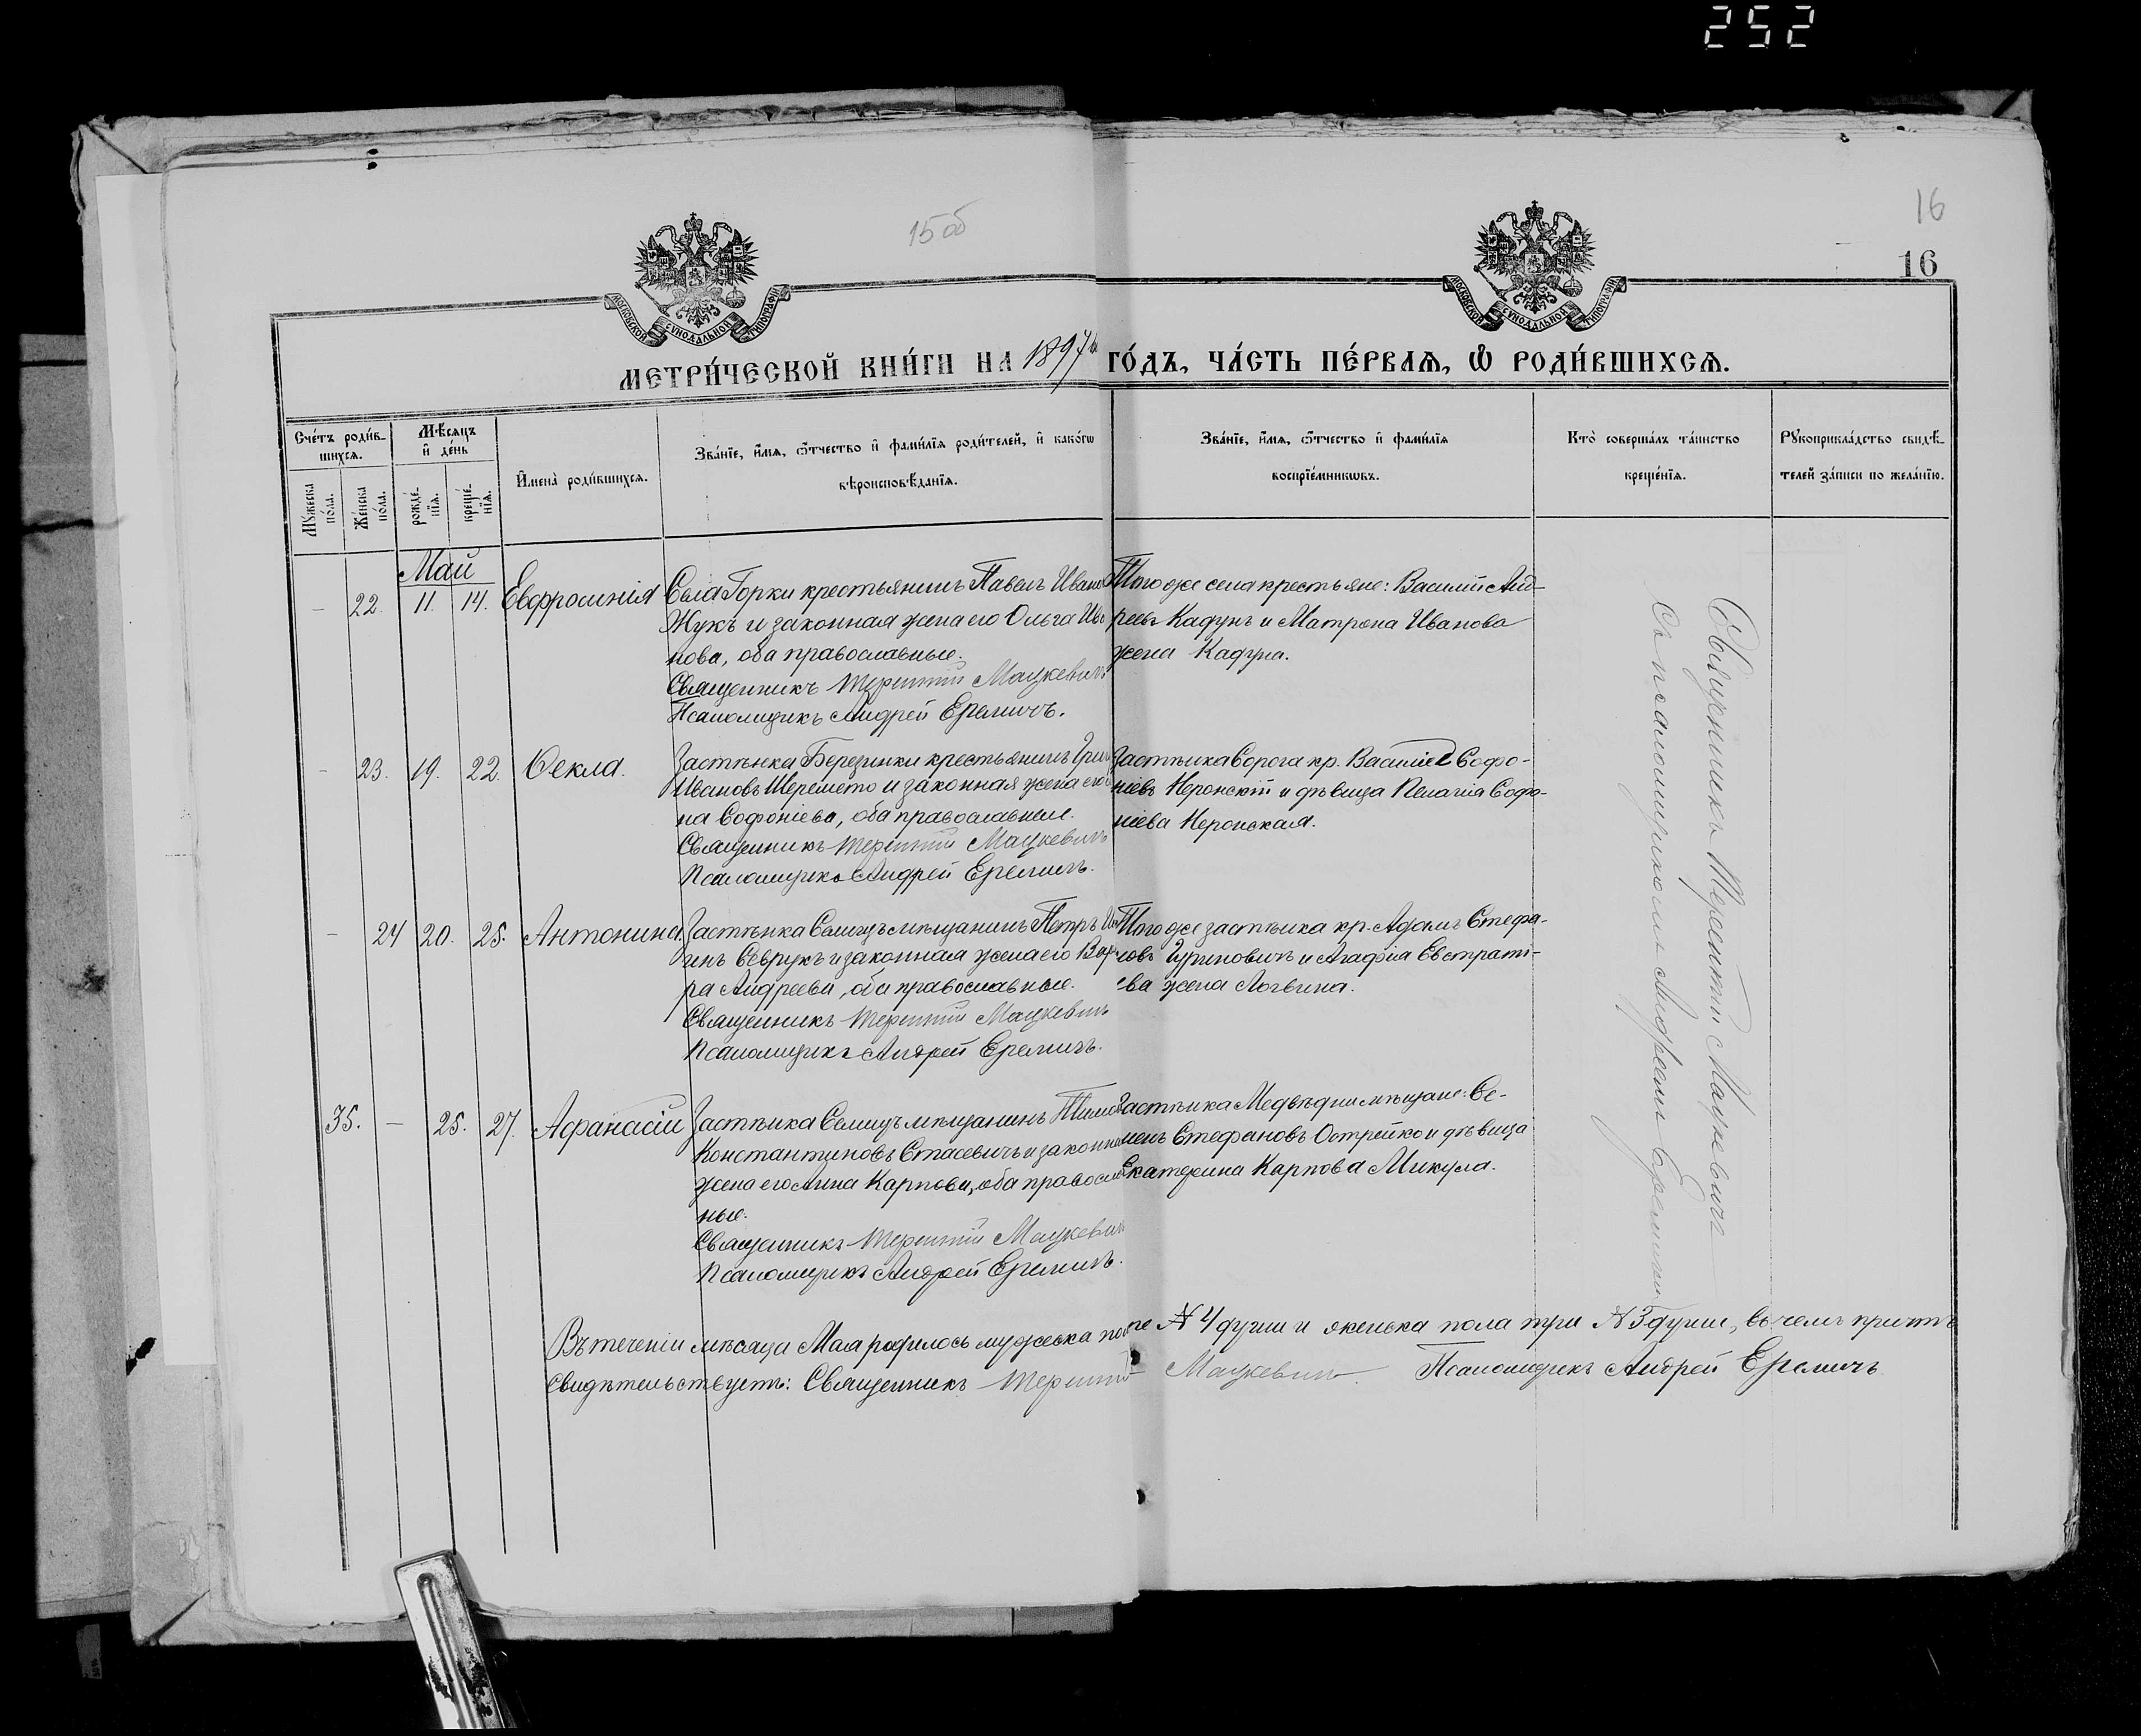 252
15об
16
16
МОСКОВСКОЙ СѴНОДАЛЬНОЙ ТИПОГРАФІИ
МОСКОВСКОЙ СѴНОДАЛЬНОЙ ТИПОГРАФІИ
МЕТРИ́ЧЕСКОЙ КНИ́ГИ НА 1897й ГО́ДЪ, ЧА́СТЬ ПЕ́РВАѦ, Ѽ РОДИ́ВШИХСѦ.
Сче́тъ роди́в-
шихсѧ.
Мѣ́сѧцъ
и҆ де́нь
Мꙋ́жеска
по́ла.
Же́нска
по́ла.
рожде́-
нїѧ.
креще́-
нїѧ.
И҆мена̀ роди́вшихсѧ.
Зва́нїе, и҆́мѧ, ѻ҆́тчество и҆ фамѵ́лїѧ роди́телей, и҆ како́гѡ
вѣроисповѣ́данїѧ.
Зва́нїе, и҆́мѧ, ѻ҆́тчество и҆ фамѵ́лїѧ
воспрїе́мникѡвъ.
Кто̀ соверша́лъ та́инство
креще́нїѧ.
Рꙋкоприкла́дство свидѣ́-
телей за́писи по жела́нїю.
Май
– 22. 11. 14. Евфросинія
Села Горки крестьянинъ Павелъ Иванов
Жукъ и законная жена его Ольга Ива
нова, оба православные.
Священникъ Терентій Мацкевичъ
Псаломщикъ Андрей Еремичъ.
Того же села крестьяне: Василій Анд-
реевъ Кадунъ и Матрона Иванова
жена Кадуна.
– 23. 19. 22. Ѳекла.
Застѣнка Березинки крестьянинъ Григ
Ивановъ Шеремето и законная жена его
на Софоніева, оба православные.
Священникъ Терентій Мацкевичъ
Псаломщикъ Андрей Еремичъ.
Застѣнка Сорога кр. Василій Софо-
ніевъ Неронскій и дѣвица Пелагіа Софо-
ніева Неронская.
– 24 20. 25. Антонина.
Застѣнка Селищъ мѣщанинъ Петръ
инъ Севрукъ и законная жена его Вар
ра Андреева, оба православные.
Священникъ Терентій Мацкевичъ
Псаломщикъ Андрей Еремичъ.
Того же застѣнка кр. Адамъ Стефа-
новъ Гуриновичъ и Агафіа Евстраті-
ева жена Логвина.
35. – 25. 27. Афанасій
Застѣнка Селищъ мѣщанинъ Тимоѳ
Константиновъ Стасевичъ и законна
жена его Анна Карпова, оба правосла
ные.
Священникъ Терентій Мацкевичъ
Псаломщикъ Андрей Еремичъ.
Застѣнка Медвѣдни мѣщане: Се-
менъ Стефановъ Острейко и дѣвица
Екатерина Карпова Микула.
Священникъ Терентій Мацкевичъ
съ псаломщикомъ Андреемъ Еремичемъ
Въ теченіи мѣсяца Мая родилось мужеска поле № 4 души и женска пола три № 3 души, въ чемъ причтъ
свидѣтельствуетъ: Священникъ Терентій Мацкевичъ. Псаломщикъ Андрей Еремичъ